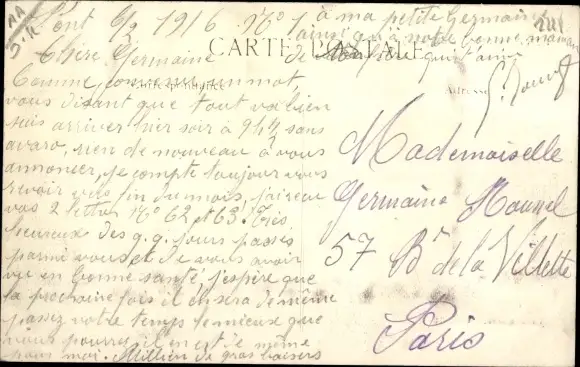 Pont 6/2 1916 No 1
à ma petite Germaine
ainsi qu'à notre bonne maman
CARTE POSTALE
Chère Germaine
de qui t'aime
Correspondance
Adresse
Comme convenu un mot
vous disant que tout va bien
suis arriver hier soir à 9h sans
avaro, rien de nouveau à vous
annoncer, je compte toujours vous
revoir vers fin du mois, j'ai reçu
vos 2 lettres No 62 et 63. Très
heureux des q.q. jours passés
parmi vous et de vous avoir
vu en bonne santé j'espère que
la prochaine fois il en sera de même
passez votre temps le mieux que
vous pourrez il en est de même
pour moi. Million de gros baisers
Mademoiselle
Germaine
57 Bd de la Villette
Paris